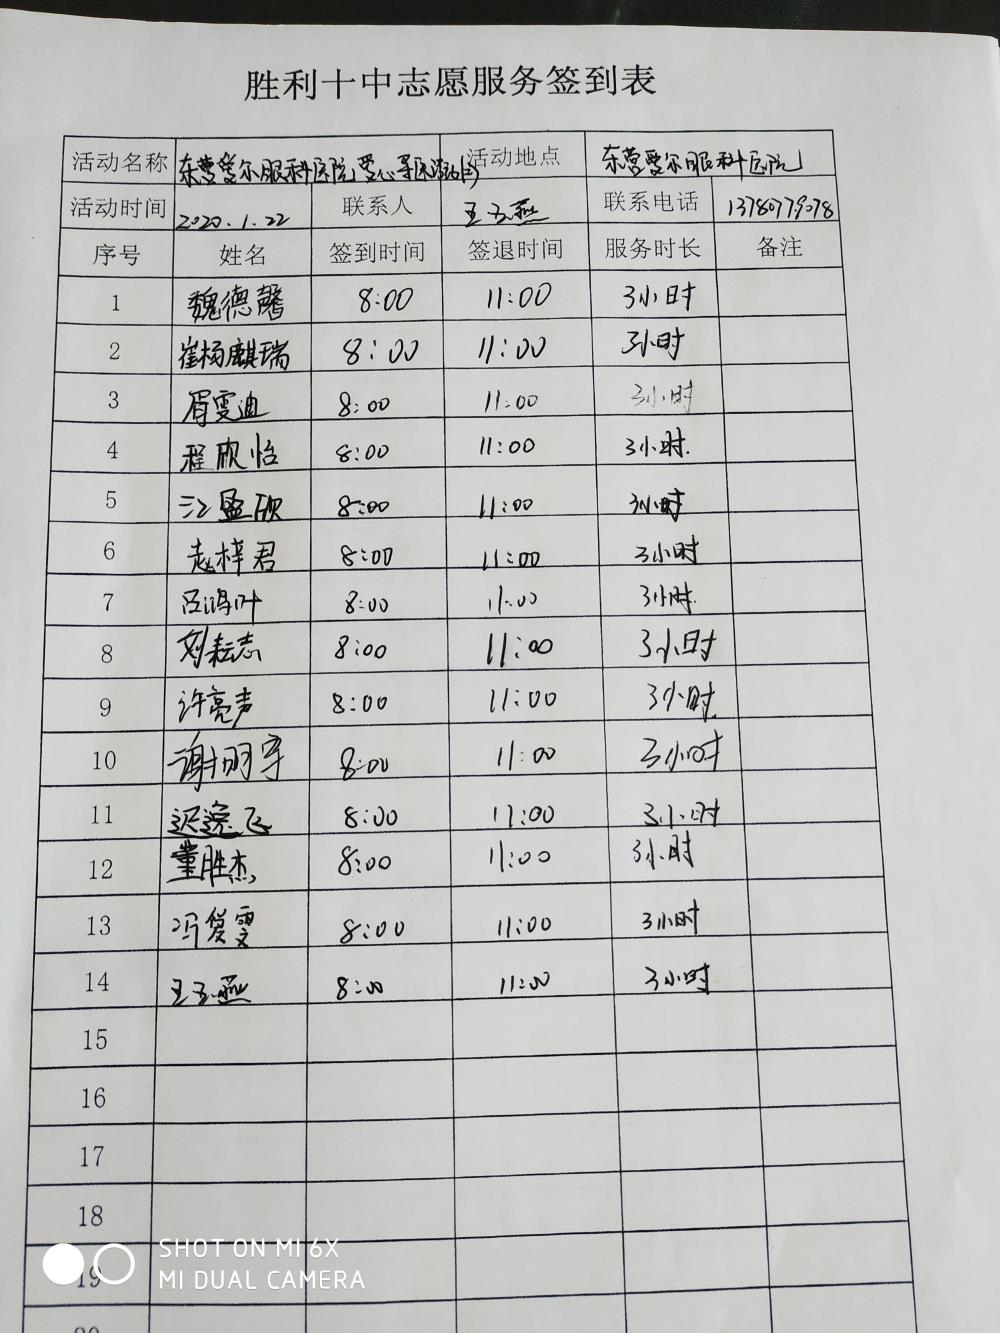 胜利十中志愿服务签到表
活动名称 东营爱尔眼科医院爱心导医活动 活动地点 东营爱尔眼科医院
活动时间 2020.1.22 联系人 王玉燕 联系电话 13780779078
序号 姓名 签到时间 签退时间 服务时长 备注
1 魏德馨 8:00 11:00 3小时
2 崔杨麒瑞 8:00 11:00 3小时
3 胥雯迪 8:00 11:00 3小时
4 程欣怡 8:00 11:00 3小时.
5 江盈欣 8:00 11:00 3小时
6 赵梓君 8:00 11:00 3小时
7 吕鸿叶 8:00 11:00 3小时.
8 刘耘志 8:00 11:00 3小时
9 许亮声 8:00 11:00 3小时.
10 谢明宇 8:00 11:00 3小时
11 迟逸飞 8:00 11:00 3小时
12 董胜杰 8:00 11:00 3小时
13 冯俊雯 8:00 11:00 3小时
14 王玉燕 8:00 11:00 3小时
15
16
17
18
19
20
SHOT ON MI 6X
MI DUAL CAMERA